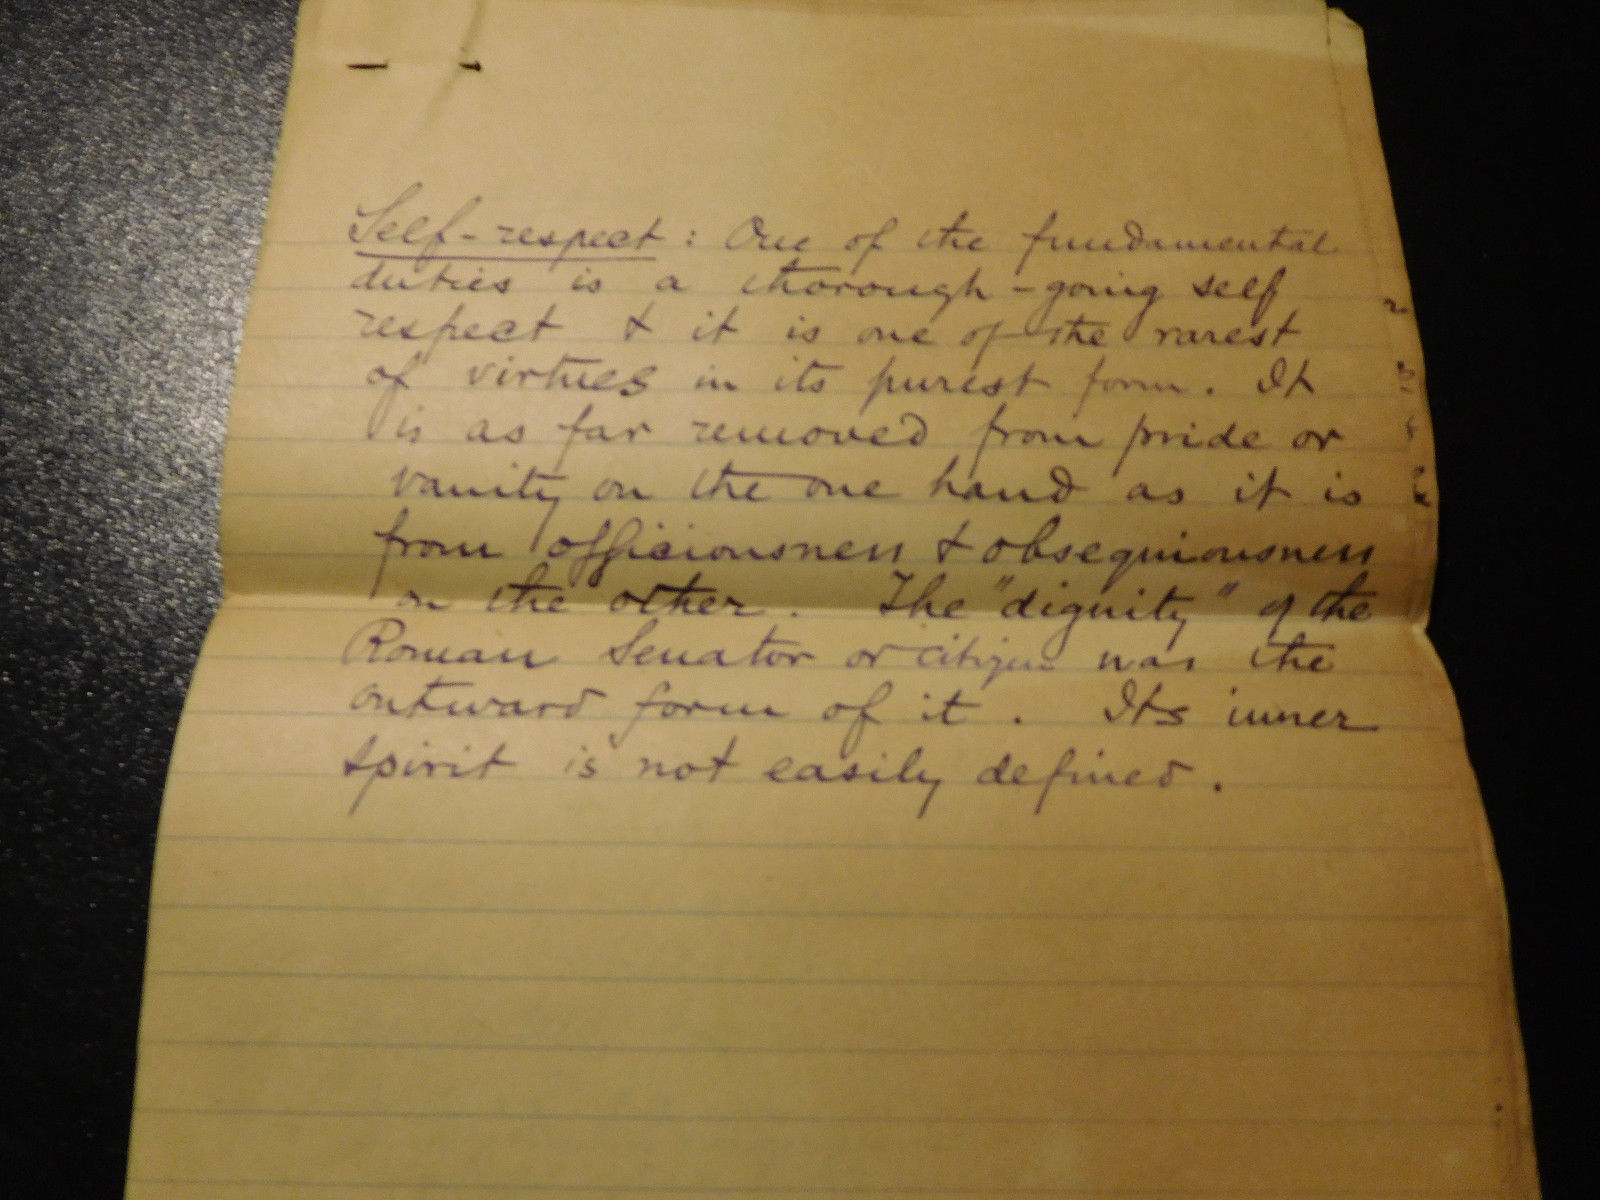 Self-respect: One of the fundamental
duties is a thorough-going self
respect & it is one of the rarest
of virtues in its purest form. It
is as far removed from pride or
vanity on the one hand as it is
from officiousness & obsequiousness
on the other. The "dignity" of the
Roman Senator or citizen was the
outward form of it. Its inner
spirit is not easily defined.